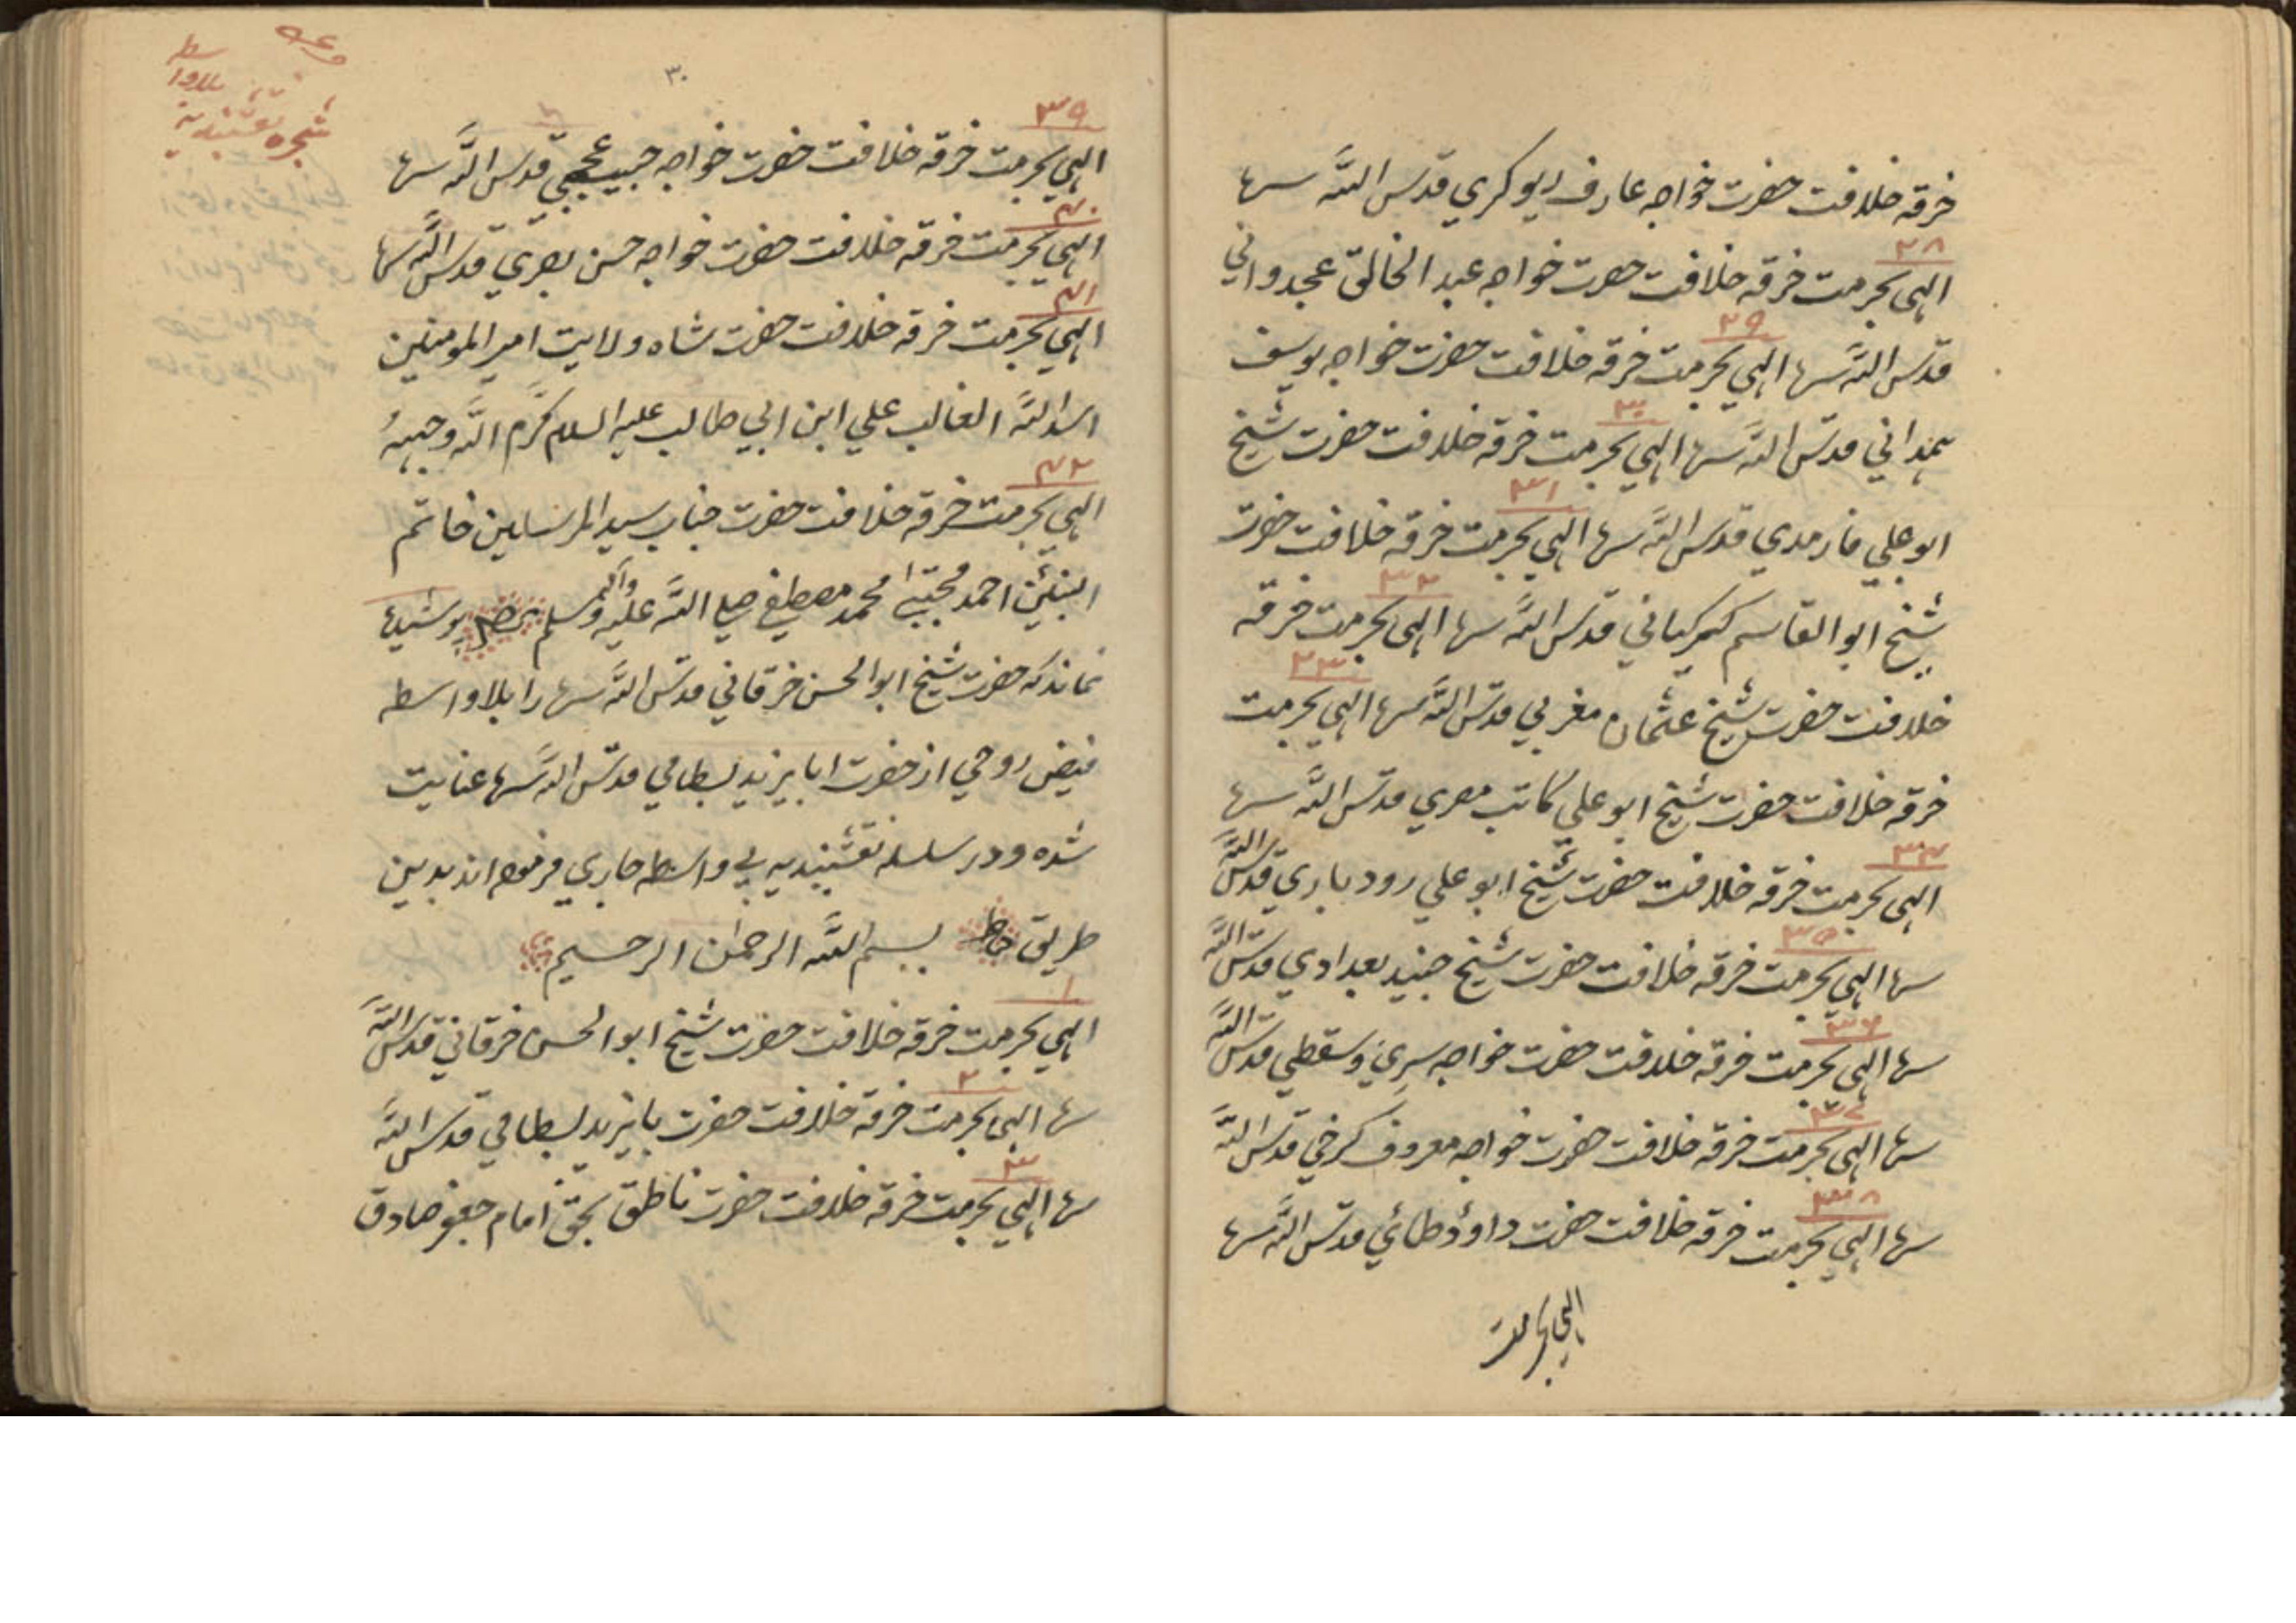 خرقه خلافت حضرت خواجه عارف ريوكري قدس الله سرها
٢٨
الهى بحرمت خرقه خلافت حضرت خواجه عبد الخالق عجدوانى
٢٩
قدس الله سرها الهي بحرمت خرقه خلافت حضرت خواجه يوسف
٣٠
همداني قدس الله سرها الهي بحرمت خرقه خلافت حضرت شيخ
٣١
ابو علي فارمدي قدس الله سرها الهي بحرمت خرقه خلافت حضرت
٣٢
شيخ ابو القاسم كركاني قدس الله سرها الهى بحرمت خرقه
٣٣
خلافت حضرت شيخ عثمان مغربي قدس الله سرها الهي بحرمت
خرقه خلافت حضرت شيخ ابو علي كاتب مصري قدس الله سرها
٣٤
الهى بحرمت خرقه خلافت حضرت شيخ ابو علي رودباري قدس الله
٣٥
سرها الهي بحرمت خرقه خلافت حضرت شيخ جنيد بغدادي قدس الله
٣٦
سرها الهي بحرمت خرقه خلافت حضرت خواجه سري وسقطي قدس الله
٣٧
سرها الهى بحرمت خرقه خلافت حضرت خواجه معروف كرخي قدس الله
٣٨
سرها الهي بحرمت خرقه خلافت حضرت داوؤد طائي قدس الله سرها
الهي بحرمت
٣٠
شجره نقشبنديه
بلاوا
سطه
٣٩
الهي بحرمت خرقه خلافت حضرت خواجه حبيب عجمي قدس الله سرها
٤٠
الهي بحرمت خرقه خلافت حضرت خواجه حسن بصري قدس الله سرها
٤١
الهي بحرمت خرقه خلافت حضرت شاه ولايت امير المومنين
اسد الله الغالب علي ابن ابي طالب عليه السلام كرم الله وجهه
٤٢
الهي بحرمت خرقه خلافت حضرت جناب سيد المرسلين خاتم
النبيين احمد مجتبى محمد مصطفى صلى الله عليه وآله وسلم پوشيده
نماند كه حضرت شيخ ابو الحسن خرقاني قدس الله سرها را بلا واسطه
فيض روحي از حضرت ابا يزيد بسطامي قدس الله سرها عنايت
شده ودر سلسله نقشبنديه بي واسطه جاري فرموده اند بدين
طريق بسم الله الرحمن الرحيم
١
الهي بحرمت خرقه خلافت حضرت شيخ ابو الحسن خرقاني قدس الله
٢
سرها الهى بحرمت خرقه خلافت حضرت بايزيد بسطامي قدس الله
٣
سرها الهي بحرمت خرقه خلافت حضرت ناطق بحق امام جعفر صادق